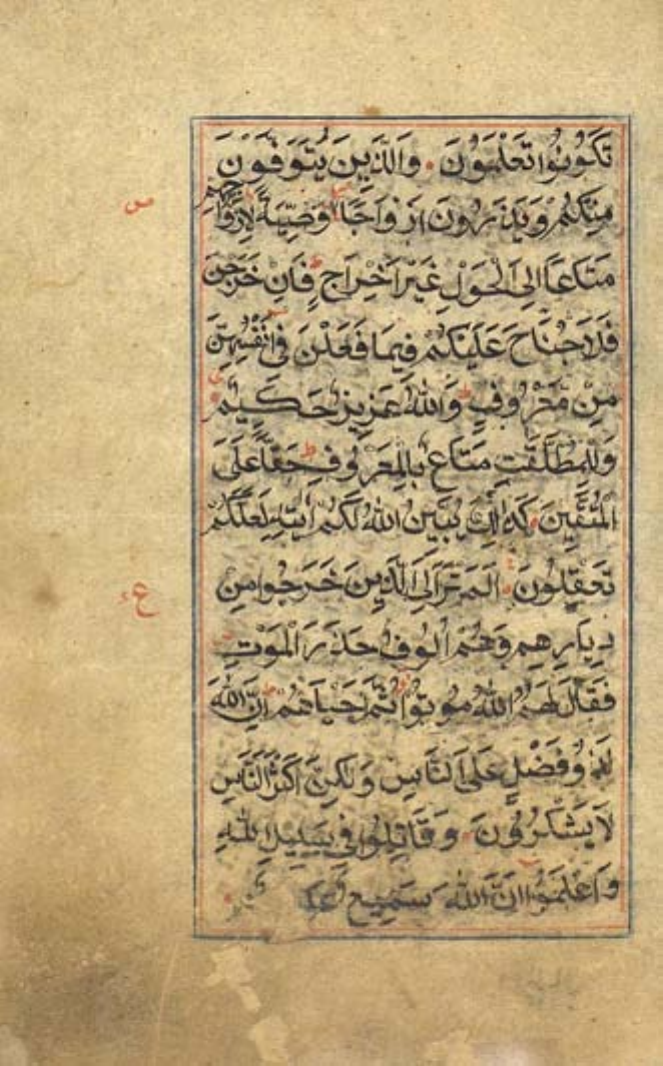 تَكُونُوا تَعْلَمُونَ وَالَّذِينَ يُتَوَفَّوْنَ
مِنْكُمْ وَيَذَرُونَ اَزْوَاجًا وَصِيَّةً لِاَزْوَاجِهِمْ
مَتَاعًا اِلَى الْحَوْلِ غَيْرَ اِخْرَاجٍ ط فَاِنْ خَرَجْنَ
فَلَا جُنَاحَ عَلَيْكُمْ فِيمَا فَعَلْنَ فِي اَنْفُسِهِنَّ
مِنْ مَعْرُوفٍ ط وَاللهُ عَزِيزٌ حَكِيمٌ
وَلِلْمُطَلَّقٰتِ مَتَاعٌ بِالْمَعْرُوفِ ط حَقًّا عَلَى
الْمُتَّقِينَ كَذٰلِكَ يُبَيِّنُ اللهُ لَكُمْ اٰيٰتِهِ لَعَلَّكُمْ
تَعْقِلُونَ اَلَمْ تَرَ اِلَى الَّذِينَ خَرَجُوا مِنْ
دِيَارِهِمْ وَهُمْ اُلُوفٌ حَذَرَ الْمَوْتِ
فَقَالَ لَهُمُ اللهُ مُوتُوا ثُمَّ اَحْيَاهُمْ اِنَّ اللهَ
لَذُو فَضْلٍ عَلَى النَّاسِ وَلٰكِنَّ اَكْثَرَ النَّاسِ
لَا يَشْكُرُونَ وَقَاتِلُوا فِي سَبِيلِ اللهِ
وَاعْلَمُوا اَنَّ اللهَ سَمِيعٌ
ع